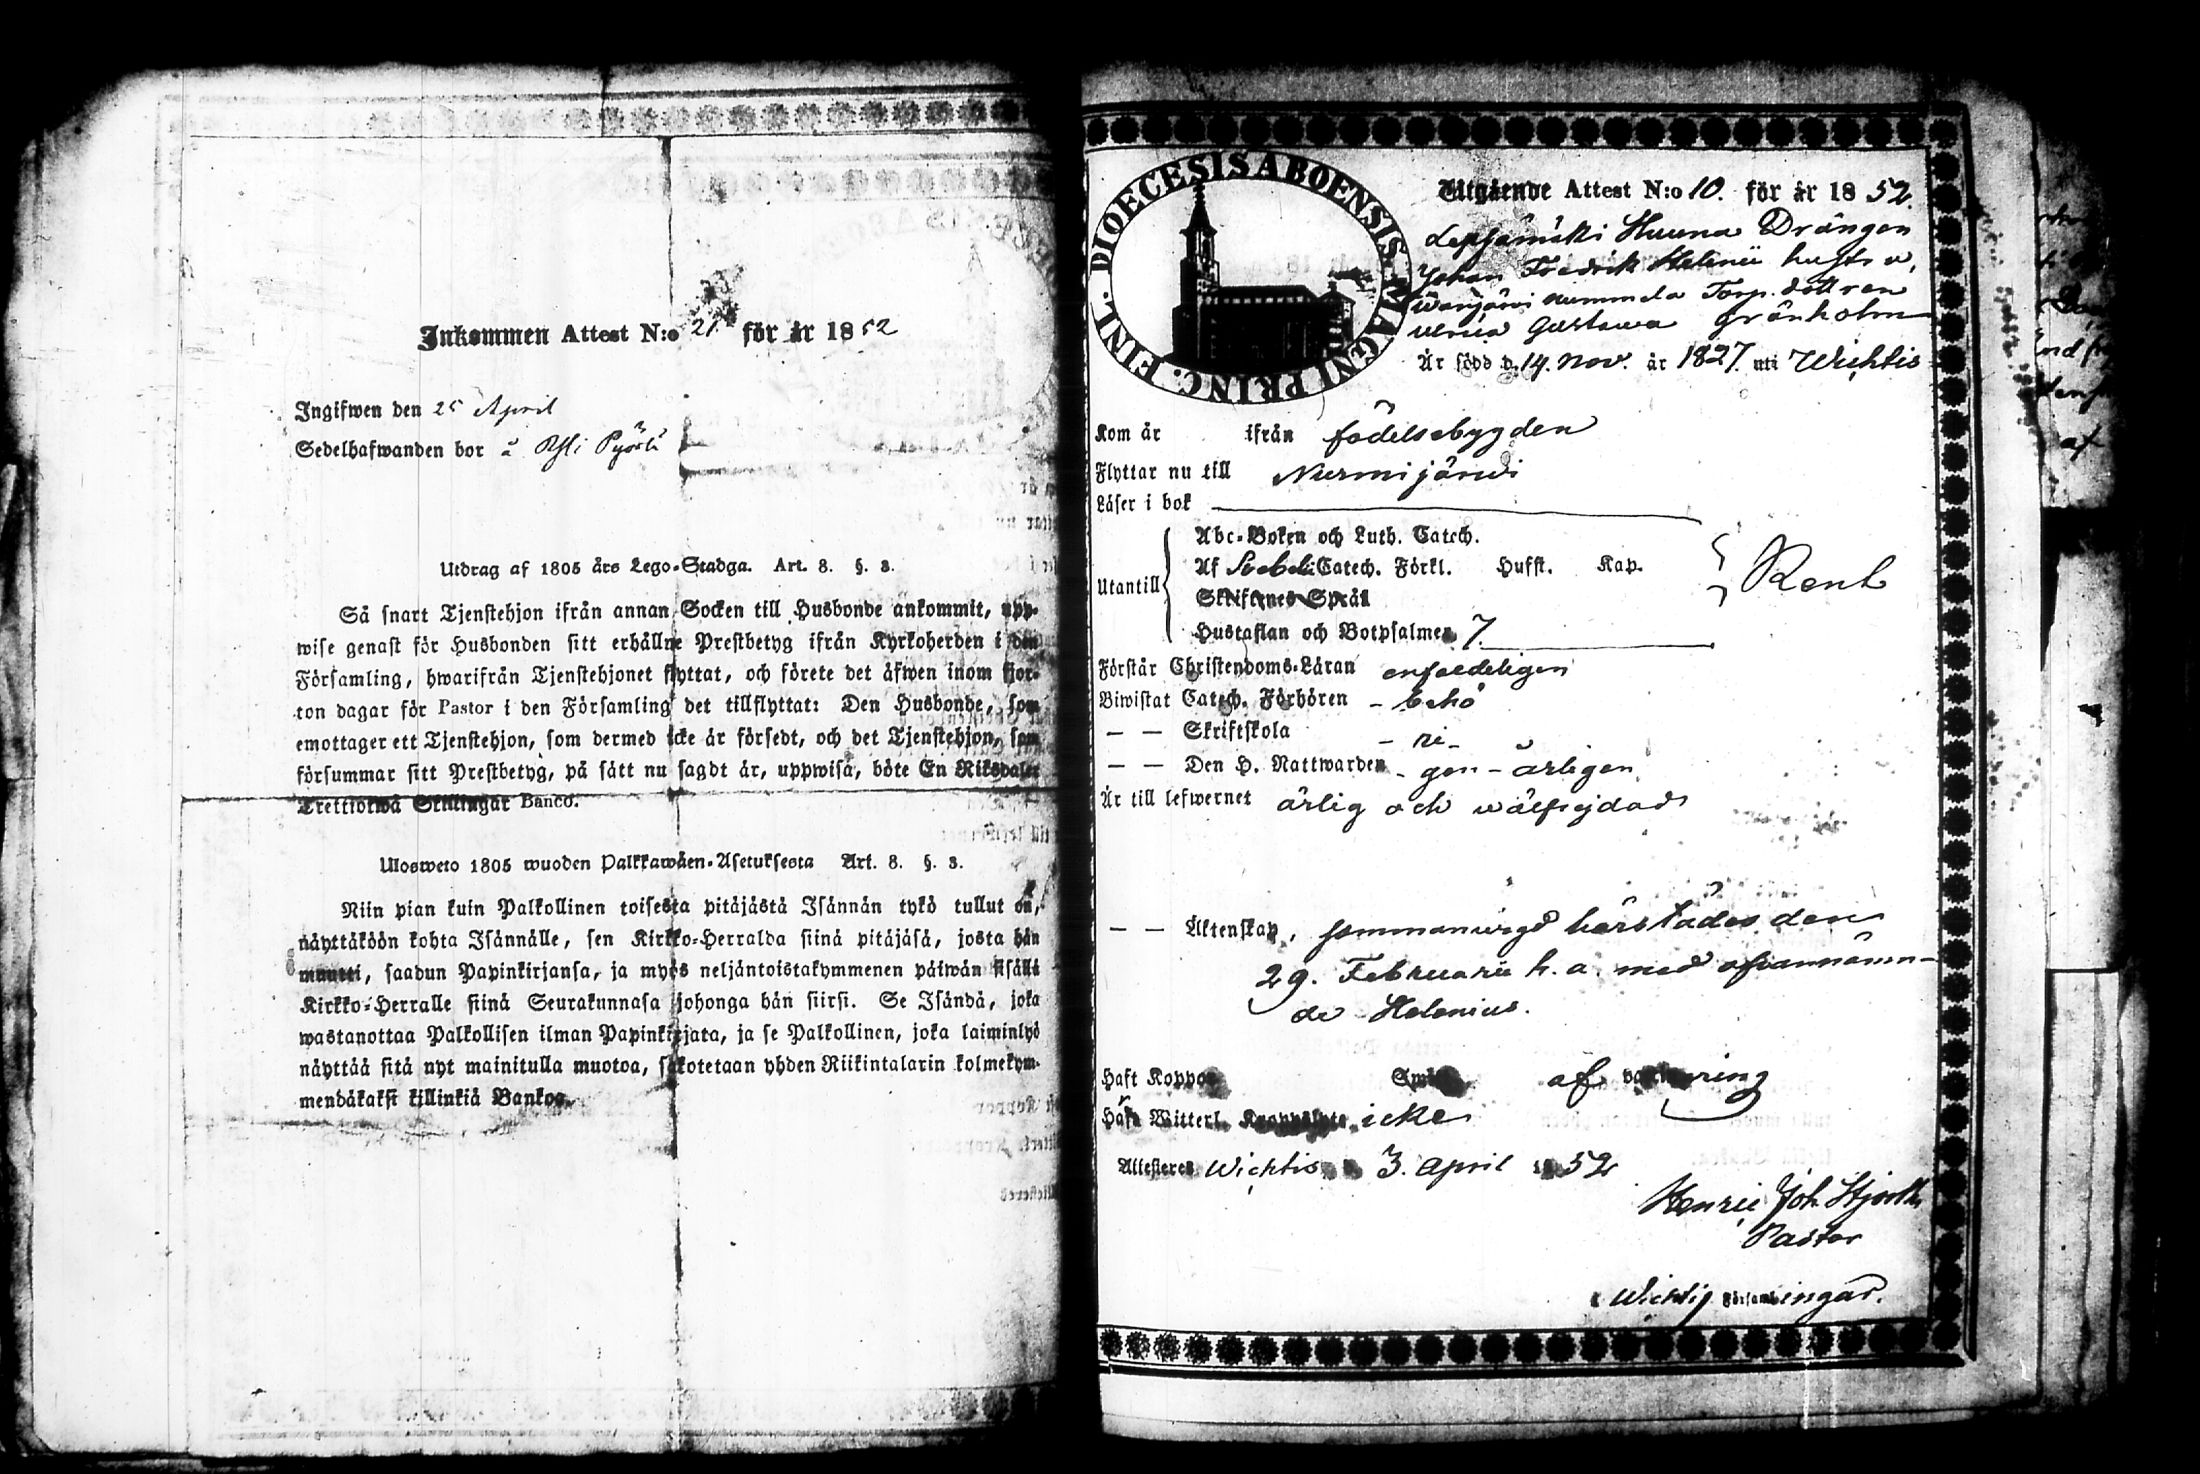 Inkommen Attest N:o 21 för år 1852
Ingifwen den 25 April
Sedelhafwanden bor å
Utdrag af 1805 års Lego-Stadga. Art. 8. §. 3.
Så snart Tjenstehjon ifrån annan Socken till Husbonde ankommit, upp-
wise genast för Husbonden sitt erhållne Prestbetyg ifrån Kyrkoherden i den
Församling, hwarifrån Tjenstehjonet flyttat, och förete det äfwen inom fjor-
ton dagar för Pastor i den Församling det tillflyttat: Den Husbonde, som
emottager ett Tjenstehjon, som dermed icke är försedt, och det Tjenstehjon, som
försummar sitt Prestbetyg, på sätt nu sagdt är, uppwisa, böte En Riksdaler
Trettiotwå Skillingar Banco.
Ulosweto 1805 wuoden Palkkawäen-Asetuksesta Art. 8. §. 3.
Niin pian kuin Palkollinen toisesta pitäjästä Isännän tykö tullut on,
näyttäköön kohta Isännälle, sen Kirkko-Herralda siinä pitäjäsä, josta hän
muutti, saadun Papinkirjansa, ja myös neljäntoistakymmenen päiwän sisällä
Kirkko-Herralle siinä Seurakunnasa johonga hän siirsi. Se Isändä, joka
wastanottaa Palkollisen ilman Papinkirjata, ja se Palkollinen, joka laiminlyö
näyttää sitä nyt mainitulla muotoa, sakotetaan yhden Riikintalarin kolmekym-
mendäkaksi killinkiä Bankoa.
FINL. DIOECESIS ABOENSIS. MAGNI PRINC.
Utgående Attest N:o 10. för år 1852.
Drängen
Johan Fredrik Helenii hustru,
nummela Torp. dottren
Ulrica Gustawa Grönholm
Är född d. 14. Nov. år 1827. uti Wichtis
Kom år ifrån födelsebygden
Flyttar nu till Nurmijärwi
Läser i bok
Utantill
Abc-Boken och Luth. Catech.
Af Svebeli Catech. Förkl. Husst. Kap.
Skriftenes Språk
Hustaflan och Botpsalmer 7.
Rent
Förstår Christendoms-Läran enfaldeligen
Biwistat Catech. Förhören - behö
— — Skriftskola - ri -
— — Den H. Nattwarden - gen - ärligen
Är till lefwernet ärlig och wälfrejdad
— — Äktenskap, sammanwigd härstädes den
29. Februarii h. a. med ofwannämn-
de Helenius.
Haft Koppor af
Hafw. Witterl. Kroppslyte icke
Attesteres Wichtis 3. April 52
Henric Joh. Hjorth
Pastor
i Wichtis Församlingar.